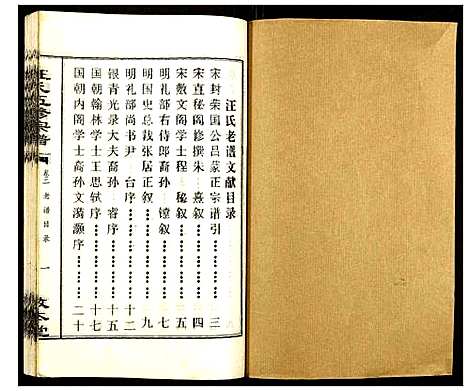 汪氏老谱文献目录
宋封荣国公吕蒙正宗谱引……三
宋直秘阁修撰朱 熹叙……四
宋敷文阁学士程 秘叙……五
明礼部右侍郎裔孙 镗叙……七
明国史总裁张居正叙……九
明礼部尚书尹 台序……十二
银青光录大夫裔孙 睿序……十五
国朝翰林学士王思轼序……十七
国朝内阁学士裔孙文漪灏序……二十
汪氏五修宗谱
卷二 老谱目录
一
敦本堂